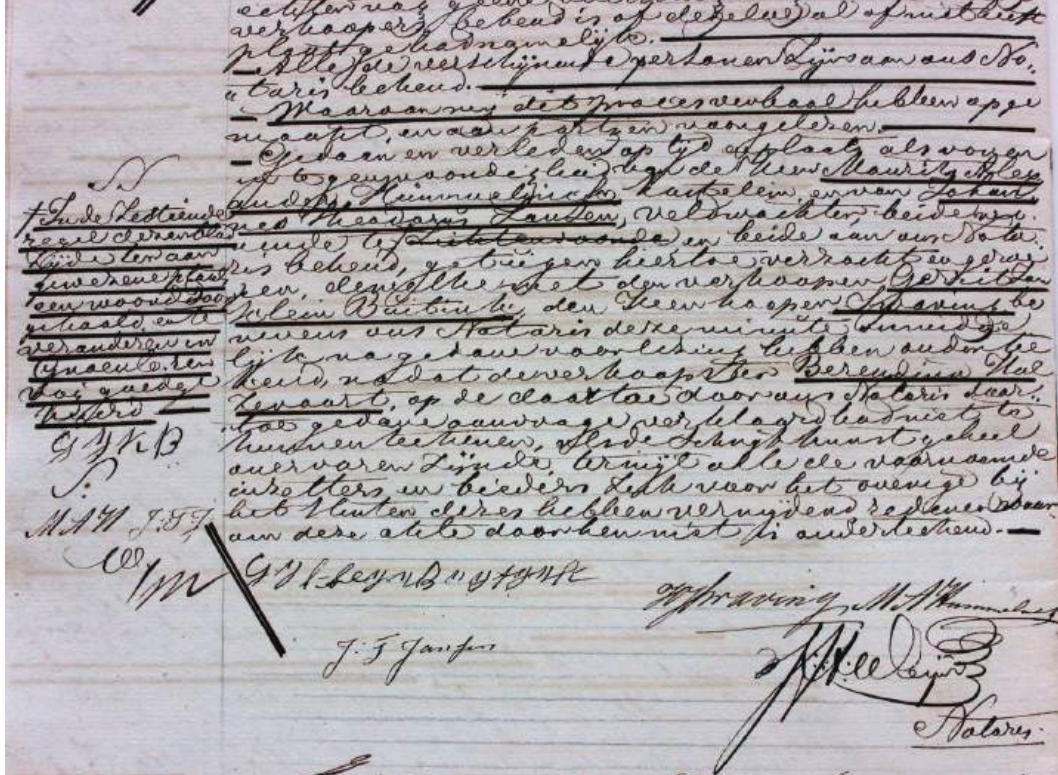 verkoopers bekend is of dezelve al of niet heeft
plaats gehad namelijk.
Alle de verschijnende personen zijn aan ons No-
taris bekend.
Waarvan wij dit proces verbaal hebben opge
maakt, en aan partzen voorgelezen.
Gedaan en verleden op tijd en plaats als voren
in tegenwoordigheid van de Heer Maurits Alex
ander Hummelinck kastelein en van Johan
nes Theodorus Jansen, veldwachter beide wo
nende te Lichtenvoorde en beide aan ons Nota
ris bekend, getuigen hiertoe verzocht en geroe
pen, dewelke met den verkooper Gerrit Jan
Klein Buitink, den Heer kooper Spraving be
nevens ons Notaris deze minute onmidde
lijk na gedane voorlezing hebben onderte
kend, nadat de verkoopster Berendina Hal
tevaart, op de daartoe door ons Notaris daar
toe gedane aanvrage verklaard had niet te
kunnen teekenen, als de schrijfkunst geheel
onervaren zijnde, terwijl alle de voornoemde
inzetters en bieders zich voor het overige bij
het sluiten dezes hebben verwijderd redenen waar
om deze akte door hen niet is onderteekend.
N
In de zestiende
regel dezer blad
zijde ten aan
gewezene plaats
een woord door
gehaald, en te
veranderen in
Groenlo. en
goedge
keurd
GJKB
S.
MAH J.T.J
GJKleynBuytynk
Spraving MAHummelinck
J: T Jansen
Notaris.